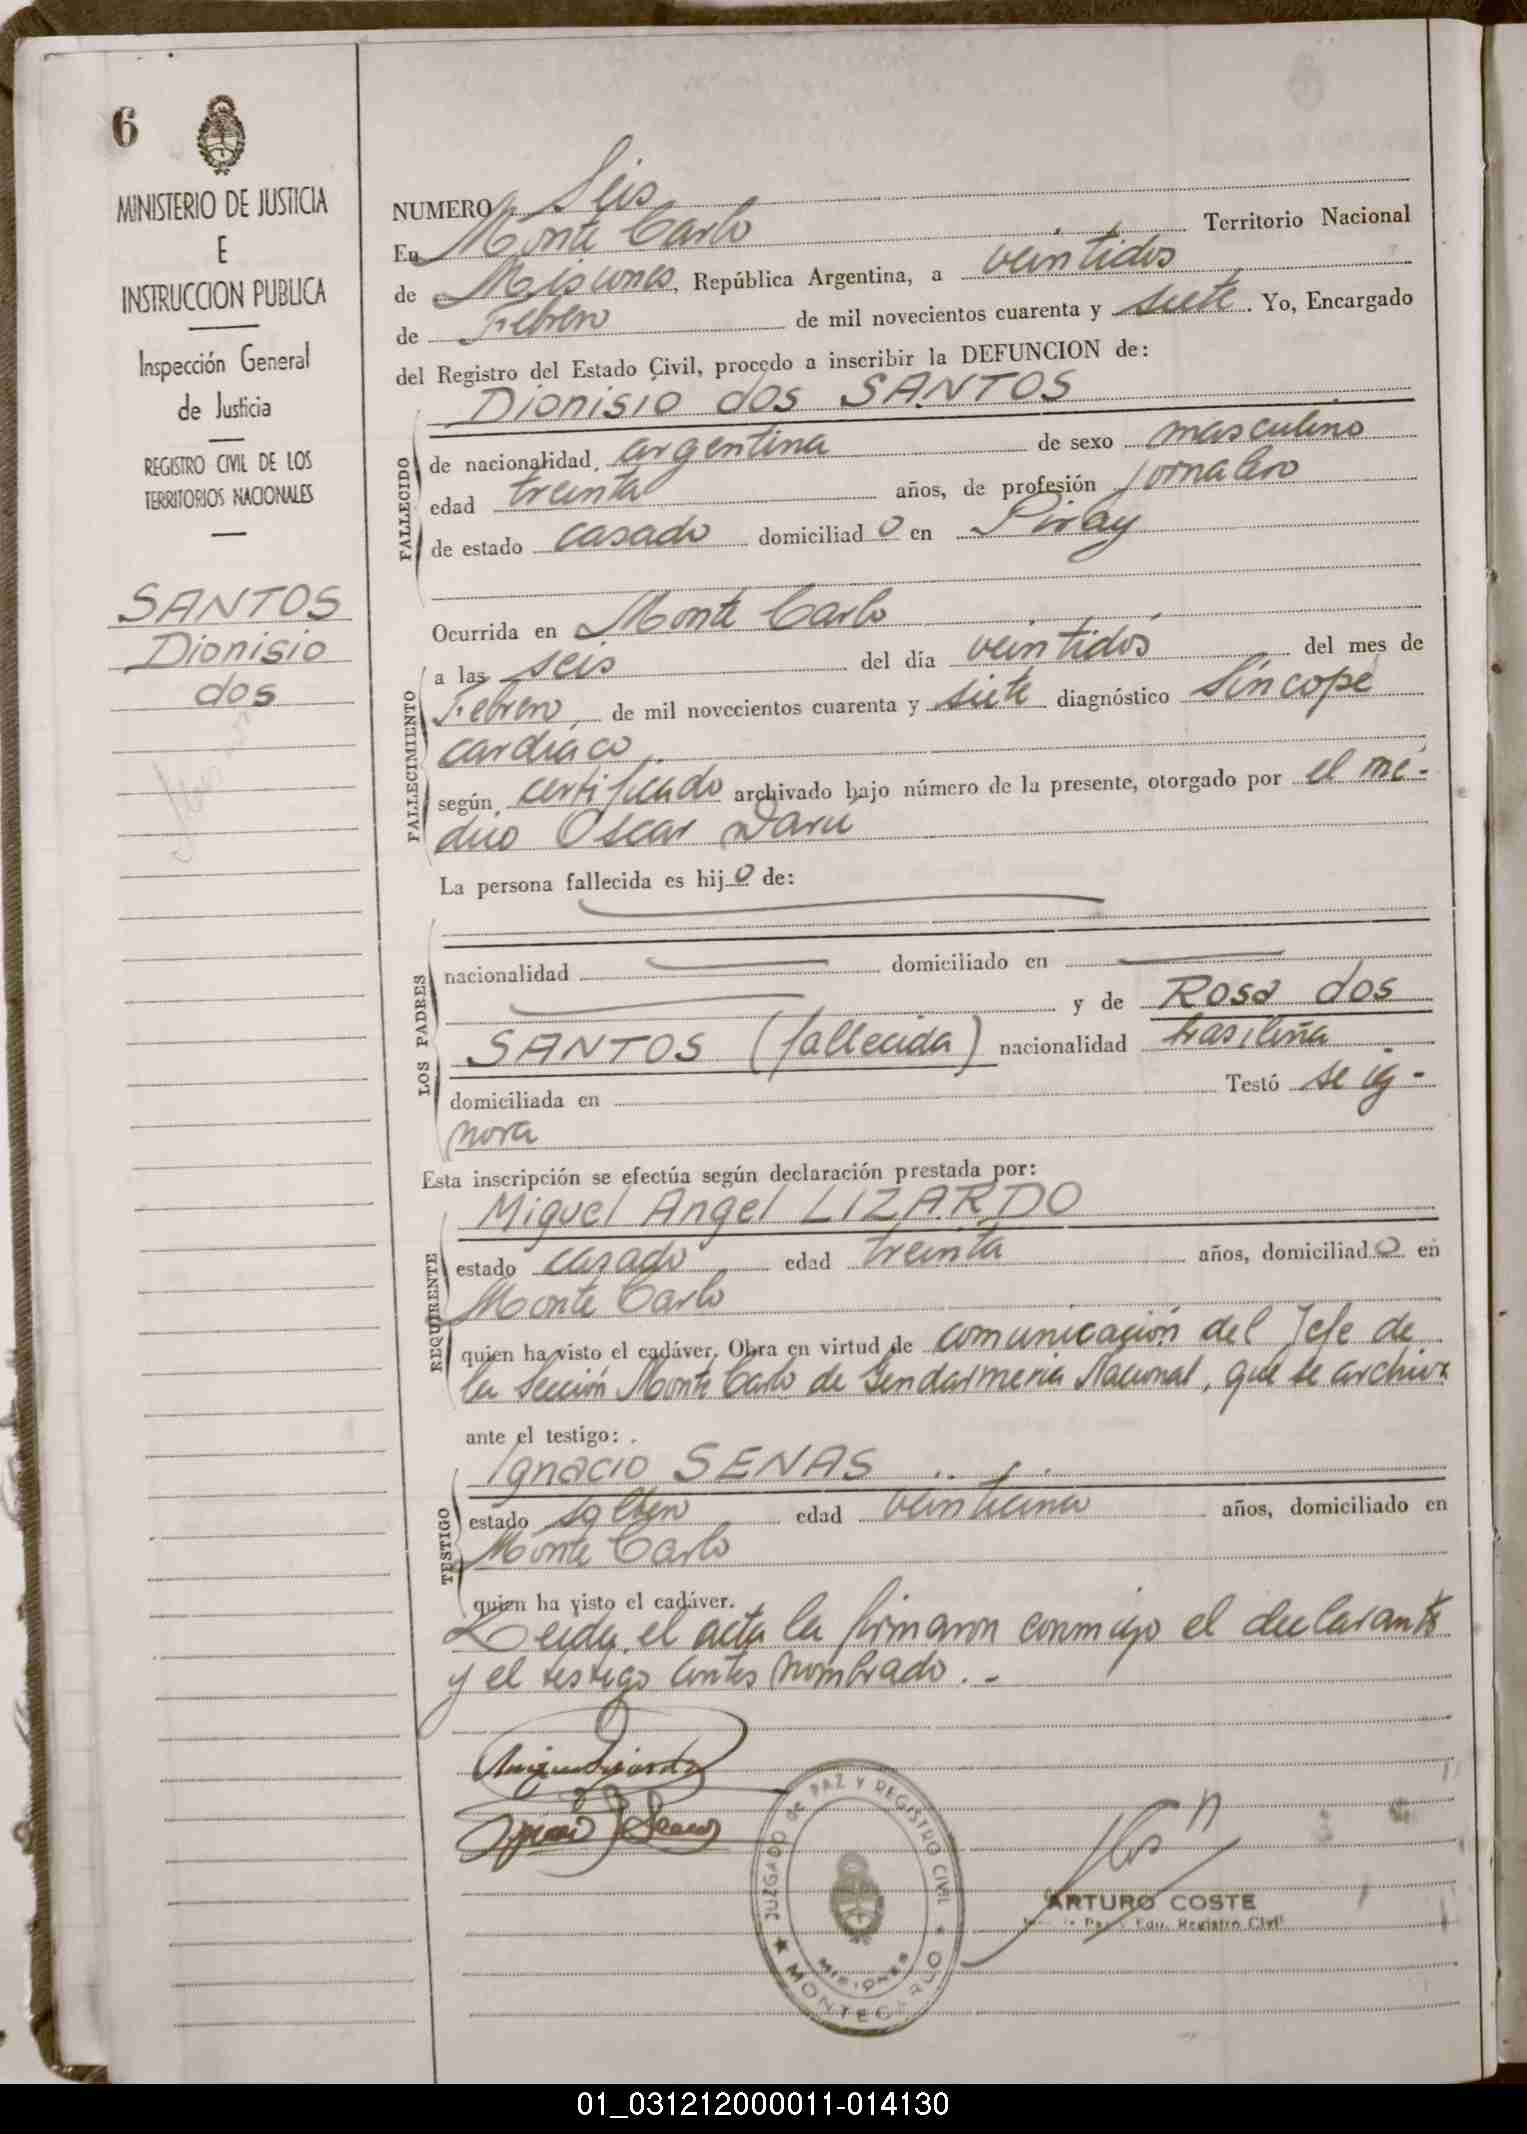 6
MINISTERIO DE JUSTICIA
E
INSTRUCCION PUBLICA
Inspección General
de Justicia
REGISTRO CIVIL DE LOS
TERRITORIOS NACIONALES
SANTOS
Dionisio
dos
NUMERO Seis
En Monte Carlo Territorio Nacional
de Misiones, República Argentina, a veintidos
de Febrero de mil novecientos cuarenta y siete. Yo, Encargado
del Registro del Estado Civil, procedo a inscribir la DEFUNCION de:
Dionisio dos SANTOS
FALLECIDO
de nacionalidad, argentina de sexo masculino
edad treinta años, de profesión jornalero
de estado casado domiciliado en Piray
Ocurrida en Monte Carlo
FALLECIMIENTO
a las seis del día veintidós del mes de
Febrero, de mil novecientos cuarenta y siete diagnóstico Síncope
cardíaco
según certificado archivado bajo número de la presente, otorgado por el mé-
dico Oscar Darú
La persona fallecida es hijo de:
LOS PADRES
nacionalidad domiciliado en
y de Rosa dos
SANTOS (fallecida) nacionalidad brasileña
domiciliada en Testó se ig-
nora
Esta inscripción se efectúa según declaración prestada por:
Miguel Angel LIZARDO
REQUIRENTE
estado casado edad treinta años, domiciliado en
Monte Carlo
quien ha visto el cadáver. Obra en virtud de comunicación del Jefe de
la Sección Monte Carlo de Gendarmeria Nacional, que se archiva
ante el testigo:
Ignacio SENAS
TESTIGO
estado soltero edad años, domiciliado en
Monte Carlo
quien ha visto el cadáver.
Leida el acta la firmaron conmigo el declarante
y el testigo antes nombrado.-
JUZGADO DE PAZ Y REGISTRO CIVIL
MISIONES
★ MONTECARLO ★
ARTURO COSTE
Registro Civil
01_031212000011-014130